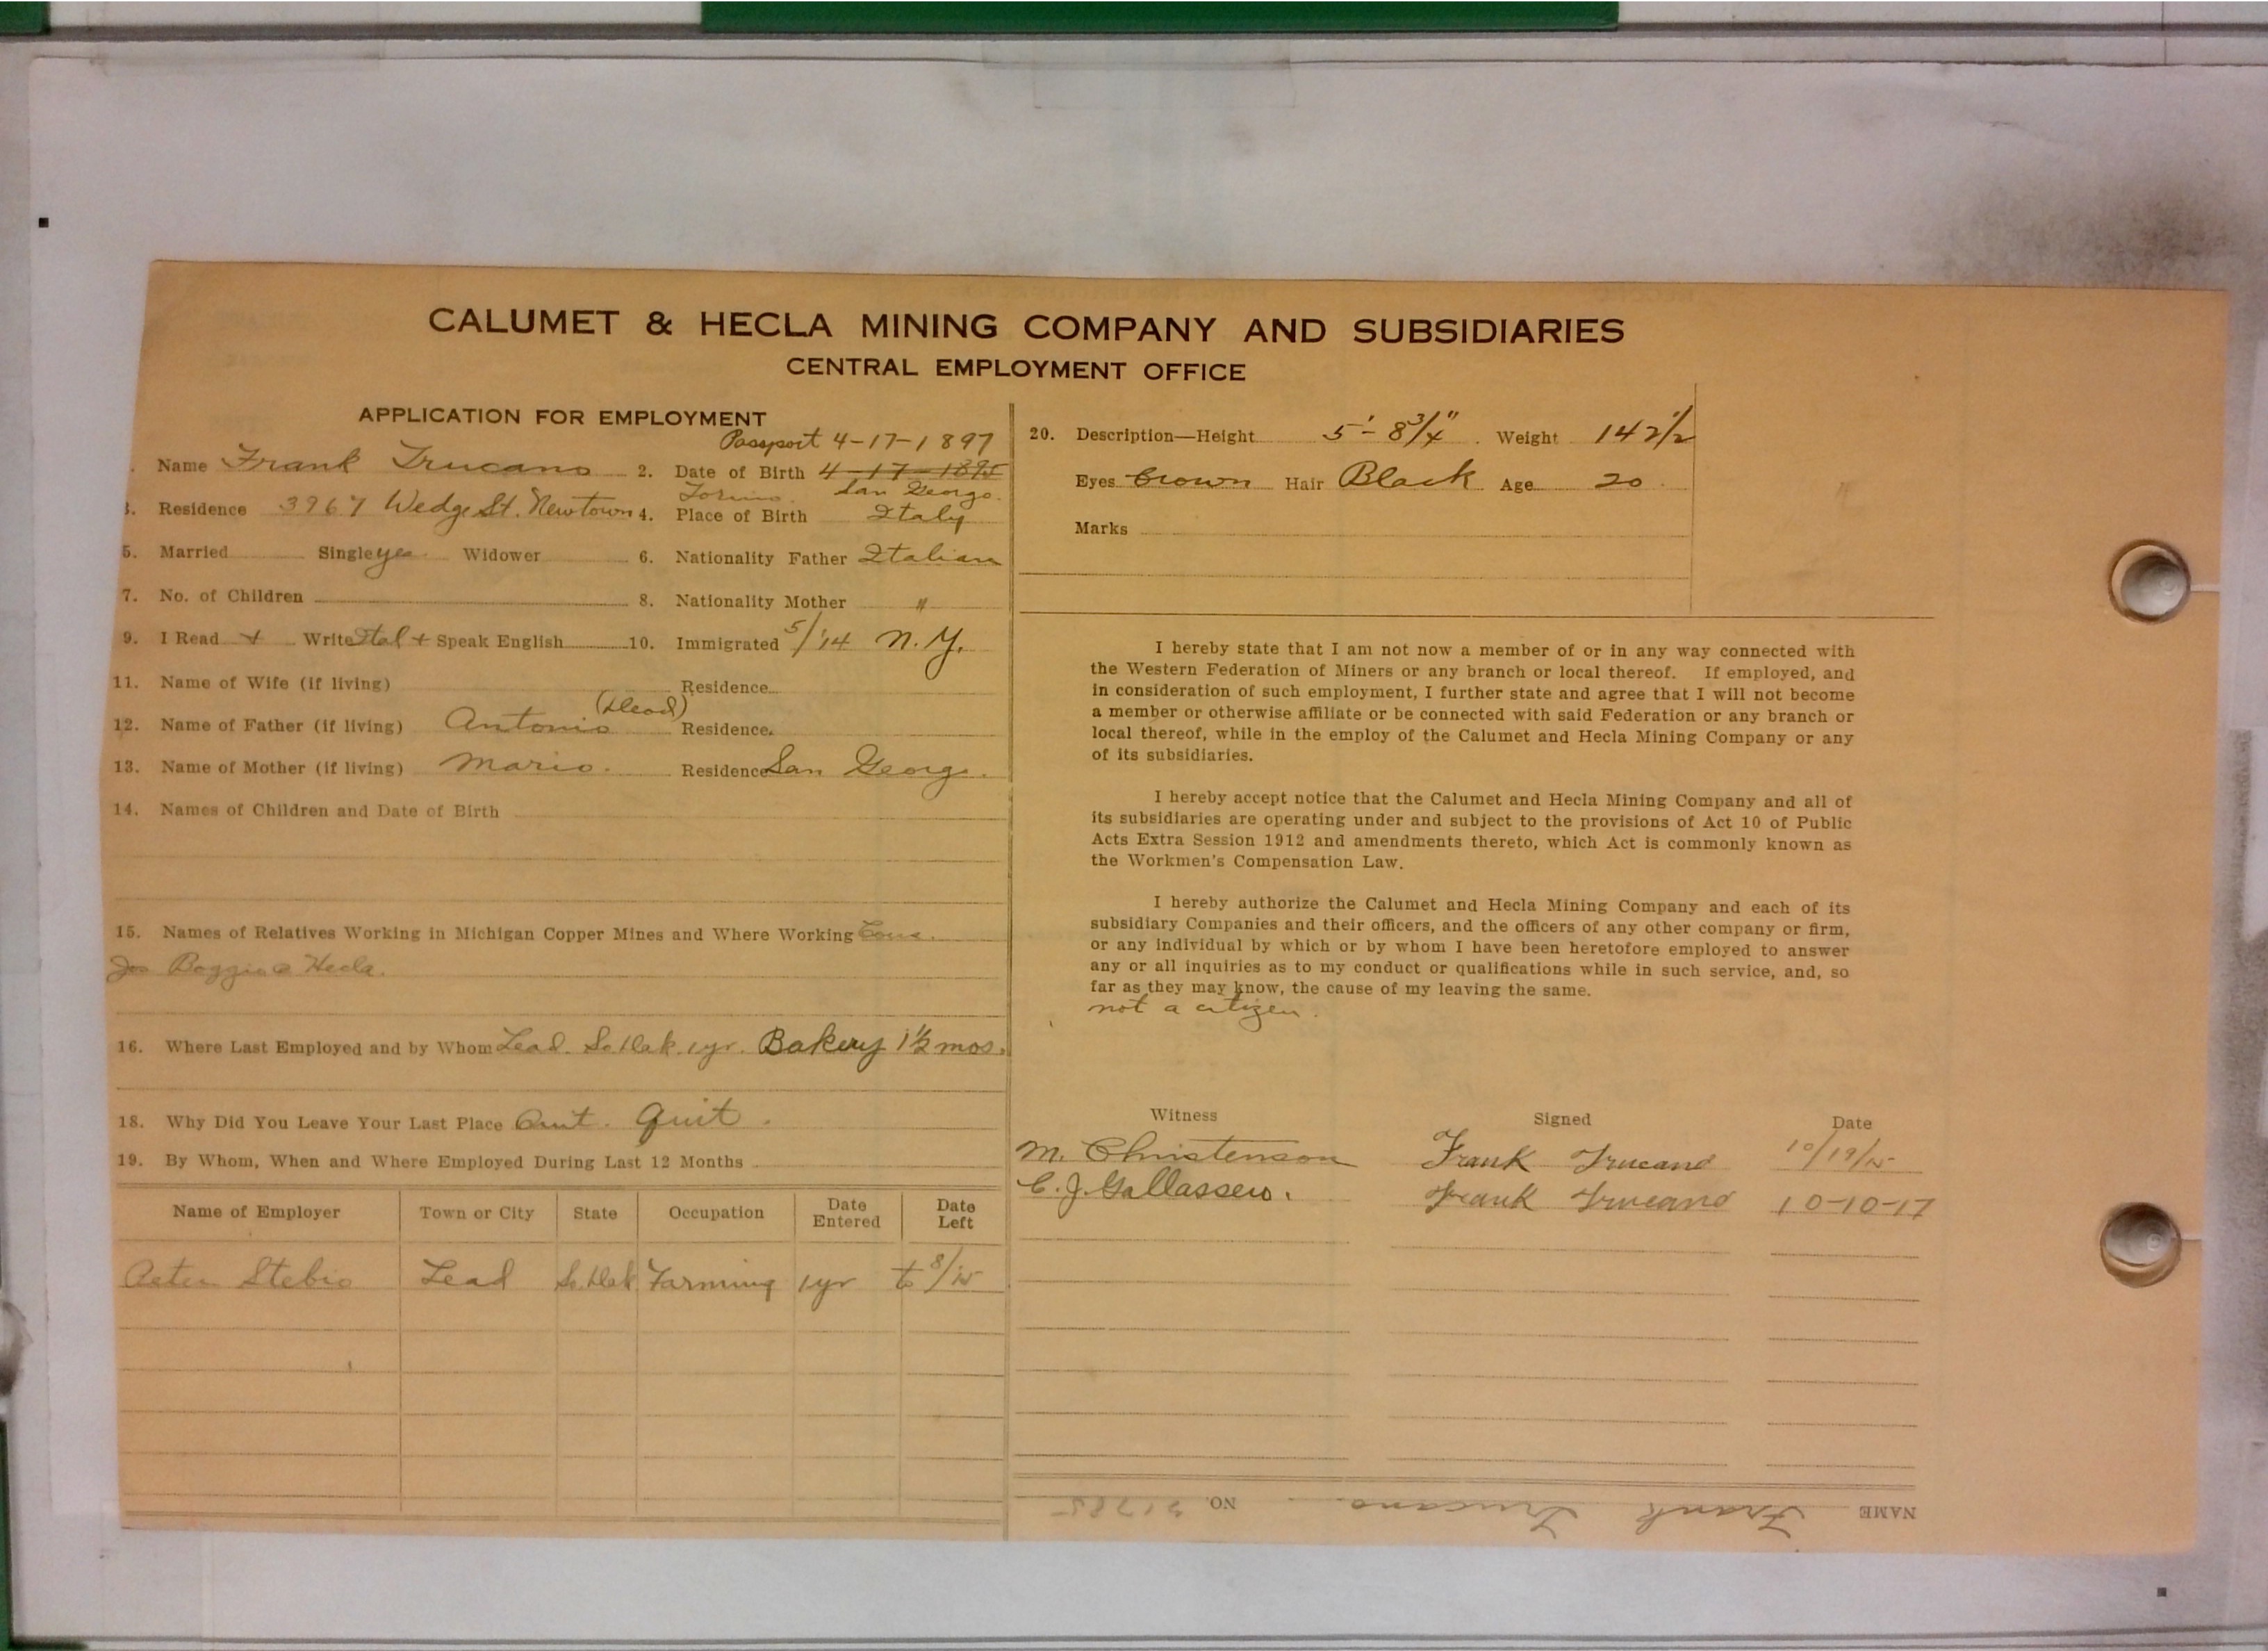 CALUMET & HECLA MINING COMPANY AND SUBSIDIARIES
CENTRAL EMPLOYMENT OFFICE
APPLICATION FOR EMPLOYMENT
Passport 4-17-1897
Name Frank Trucano 2. Date of Birth 4-17-1895
Torino. San Georgo.
3. Residence 3967 Wedge St. Newtown 4. Place of Birth Italy
5. Married Single yes Widower 6. Nationality Father Italian
7. No. of Children 8. Nationality Mother "
9. I Read + Write Ital + Speak English 10. Immigrated 5/'14 N.Y.
11. Name of Wife (if living) Residence
12. Name of Father (if living) Antonio (Dead) Residence
13. Name of Mother (if living) Mario. Residence San Georgo.
14. Names of Children and Date of Birth
15. Names of Relatives Working in Michigan Copper Mines and Where Working Cous.
Jos Boggio @ Hecla.
16. Where Last Employed and by Whom Lead. So. Dak. 1 yr. Bakery 1½ mos.
18. Why Did You Leave Your Last Place Quit. Quit.
19. By Whom, When and Where Employed During Last 12 Months
Name of Employer Town or City State Occupation Date Entered Date Left
Stebio Lead So. Dak Farming 1 yr to 8/15
20. Description—Height 5'- 8 3/4" Weight 142 1/2
Eyes Brown Hair Black Age 20
Marks
I hereby state that I am not now a member of or in any way connected with
the Western Federation of Miners or any branch or local thereof. If employed, and
in consideration of such employment, I further state and agree that I will not become
a member or otherwise affiliate or be connected with said Federation or any branch or
local thereof, while in the employ of the Calumet and Hecla Mining Company or any
of its subsidiaries.
I hereby accept notice that the Calumet and Hecla Mining Company and all of
its subsidiaries are operating under and subject to the provisions of Act 10 of Public
Acts Extra Session 1912 and amendments thereto, which Act is commonly known as
the Workmen's Compensation Law.
I hereby authorize the Calumet and Hecla Mining Company and each of its
subsidiary Companies and their officers, and the officers of any other company or firm,
or any individual by which or by whom I have been heretofore employed to answer
any or all inquiries as to my conduct or qualifications while in such service, and, so
far as they may know, the cause of my leaving the same.
not a citizen.
Witness Signed Date
M. Christenson Frank Trucano 10/19/15
C. J. Frank Trucano 10-10-17
NAME Frank Trucano. NO.